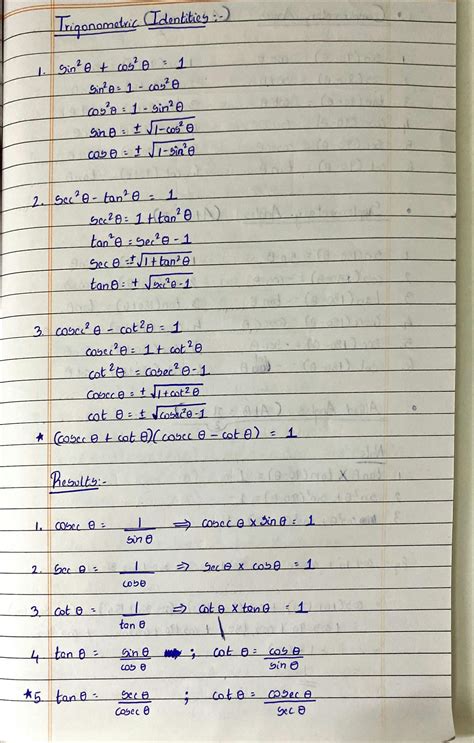 Trigonometric (Identities :-)
1. sin²θ + cos²θ = 1
sin²θ = 1 - cos²θ
cos²θ = 1 - sin²θ
sin θ = ± √1-cos²θ
cos θ = ± √1-sin²θ
2. sec²θ - tan²θ = 1
sec²θ = 1 + tan²θ
tan²θ = sec²θ - 1
sec θ = ± √1+tan²θ
tan θ = ± √sec²θ-1
3. cosec²θ - cot²θ = 1
cosec²θ = 1 + cot²θ
cot²θ = cosec²θ - 1
cosec θ = ± √1+cot²θ
cot θ = ± √cosec²θ-1
* (cosec θ + cot θ)(cosec θ - cot θ) = 1
Results:-
1. cosec θ = 1/sin θ ⇒ cosec θ × sin θ = 1
2. sec θ = 1/cos θ ⇒ sec θ × cos θ = 1
3. cot θ = 1/tan θ ⇒ cot θ × tan θ = 1
4 tan θ = sin θ/cos θ ; cot θ = cos θ/sin θ
*5 tan θ = sec θ/cosec θ ; cot θ = cosec θ/sec θ